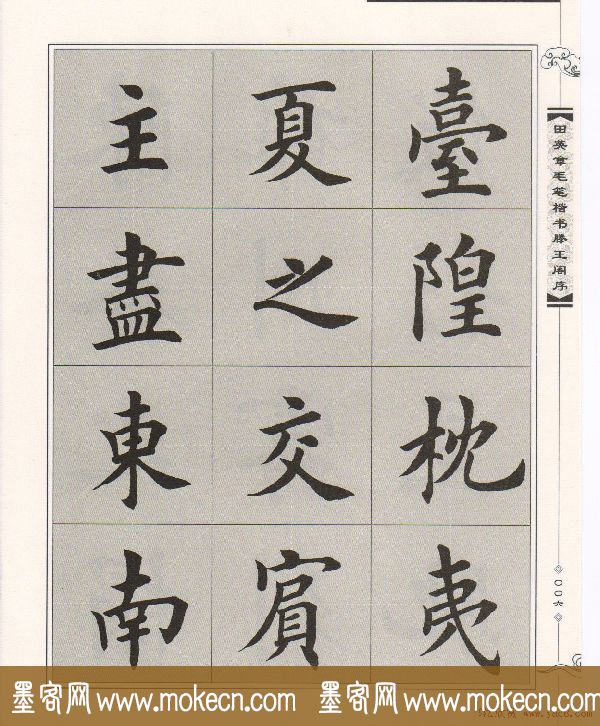 臺隍枕夷
夏之交賓
主盡東南
《田英章毛笔楷书滕王阁序》
〇〇六
墨客网 www.mokecn.com 墨客网 www.mokecn.com